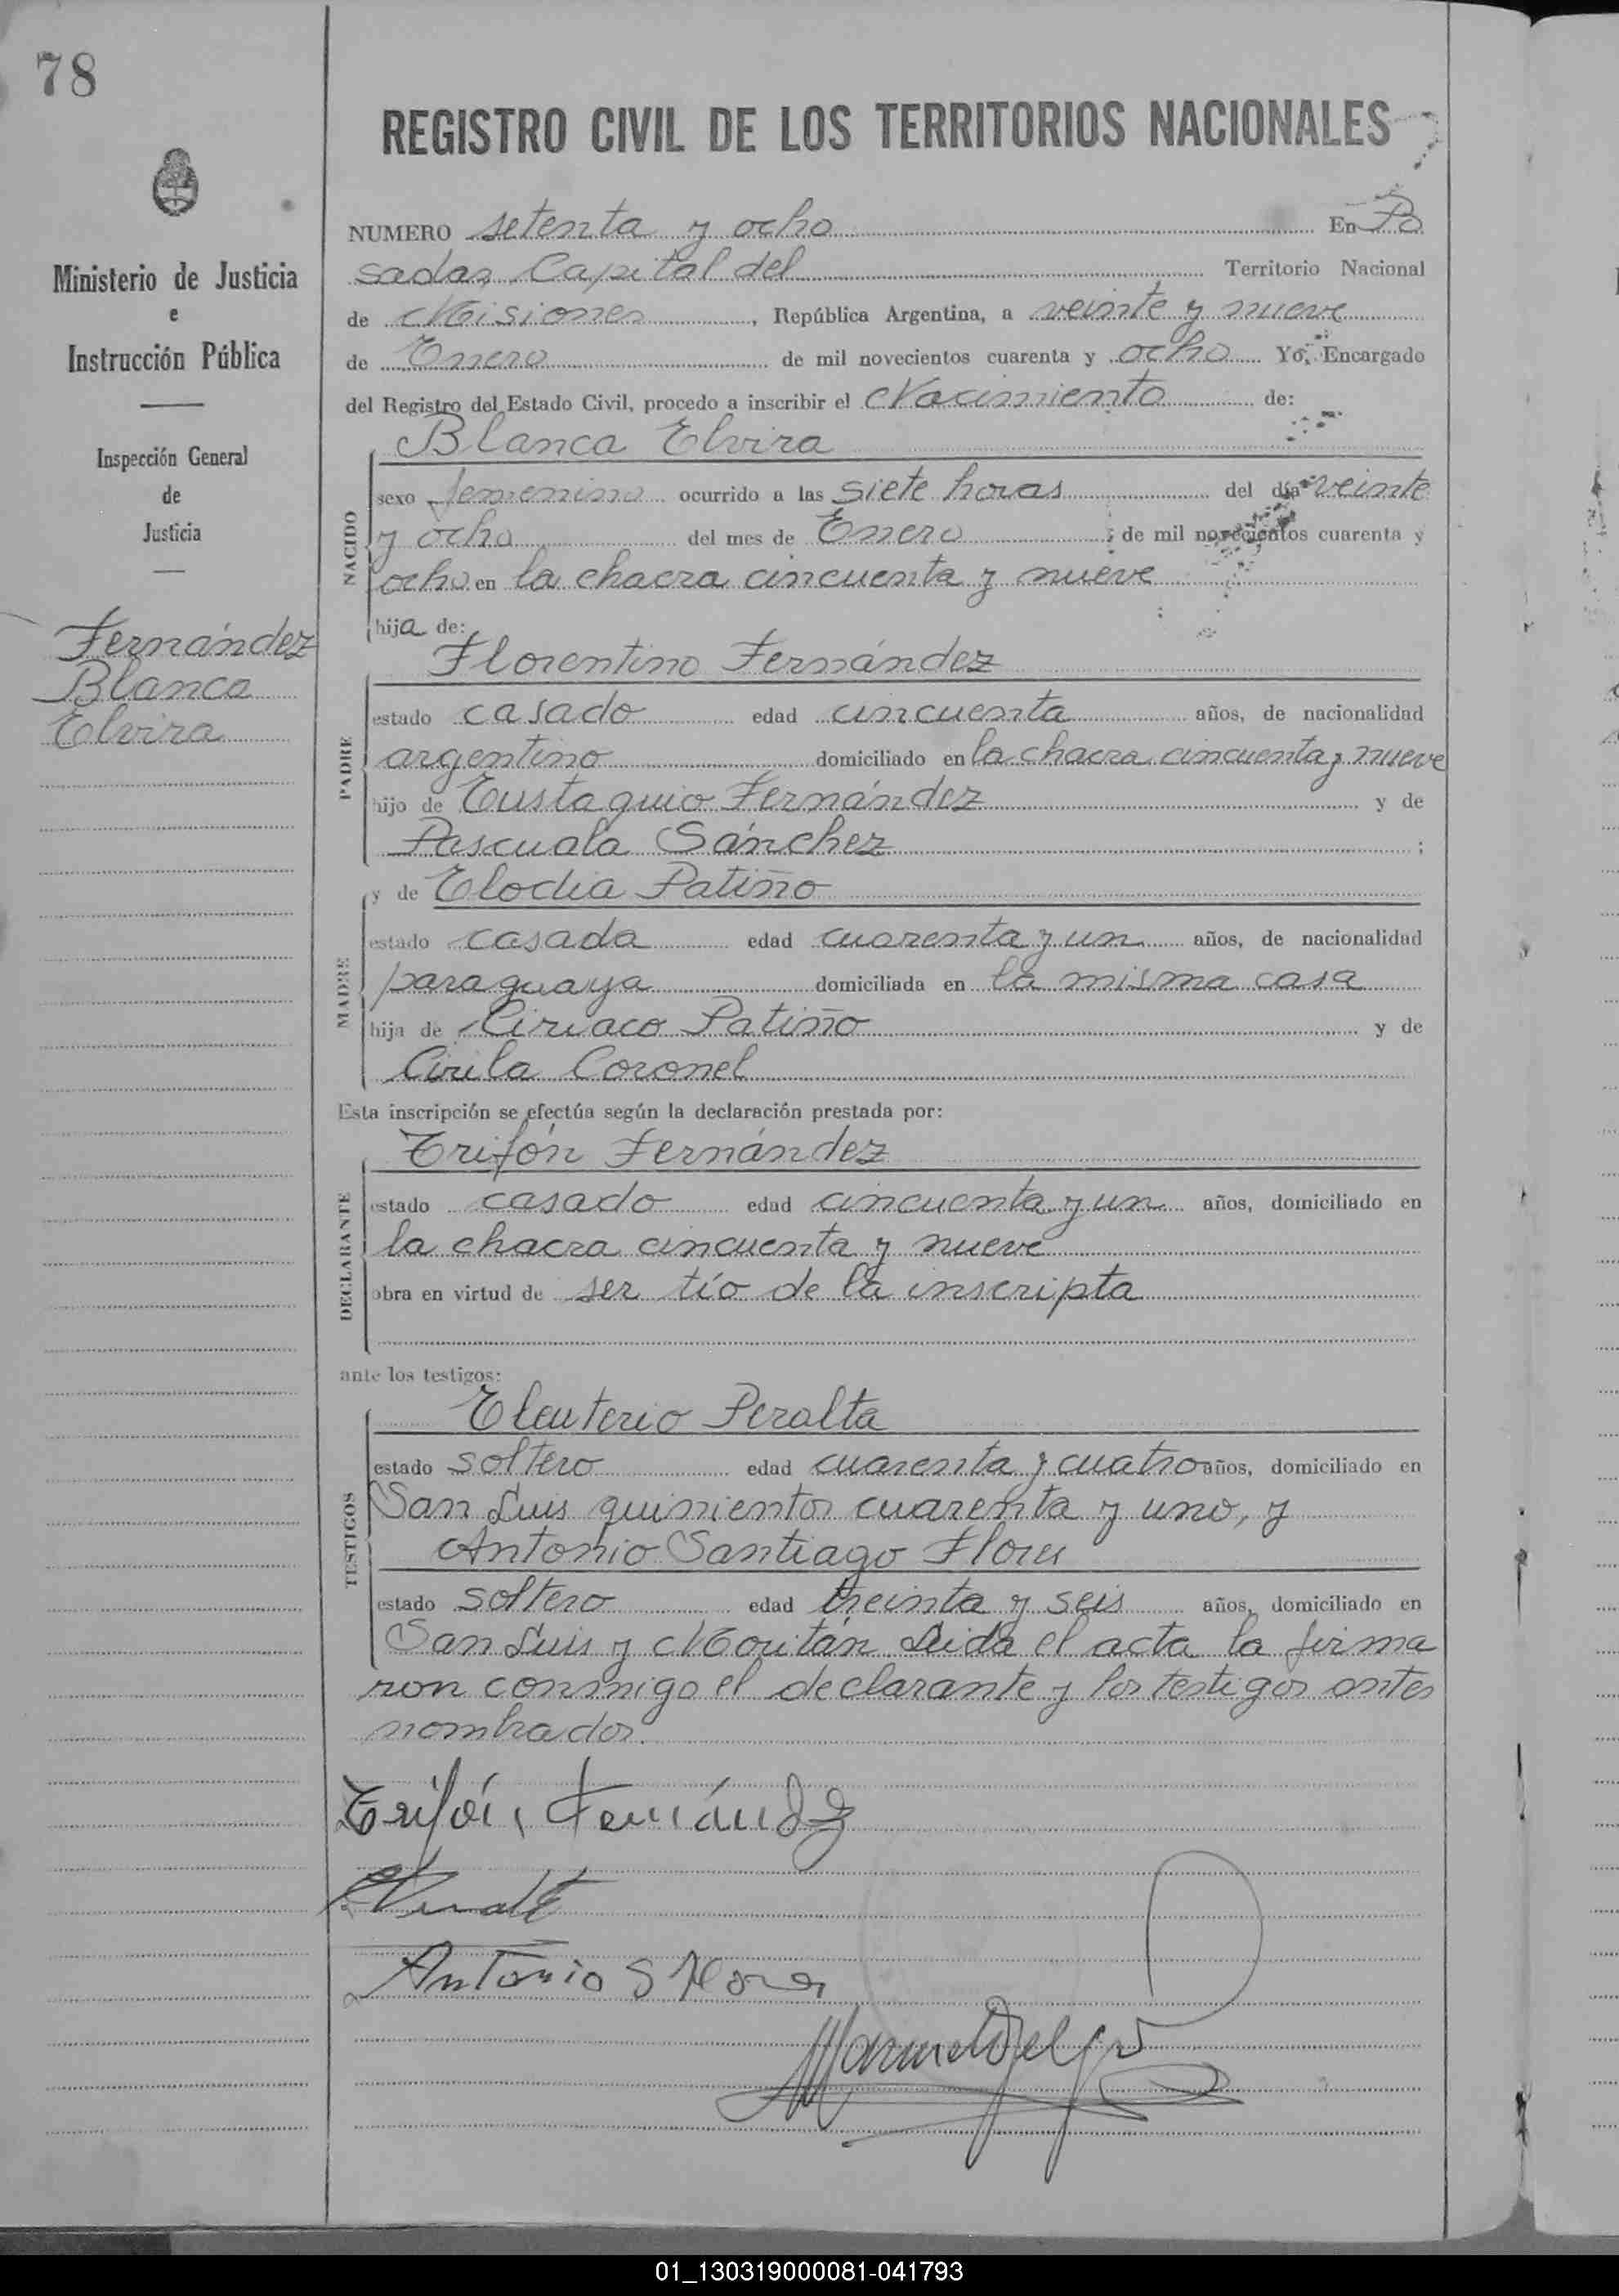 78
REGISTRO CIVIL DE LOS TERRITORIOS NACIONALES
Ministerio de Justicia
e
Instrucción Pública
Inspección General
de
Justicia
Fernández
Blanca
Elvira
NUMERO setenta y ocho En Po
sadas, Capital del Territorio Nacional
de Misiones, República Argentina, a veinte y nueve
de Enero de mil novecientos cuarenta y ocho Yo, Encargado
del Registro del Estado Civil, procedo a inscribir el Nacimiento de:
Blanca Elvira
NACIDO
sexo femenino ocurrido a las siete horas del día veinte
y ocho del mes de Enero de mil novecientos cuarenta y
ocho en la chacra cincuenta y nueve
hija de:
Florentino Fernández
PADRE
estado casado edad cincuenta años, de nacionalidad
argentino domiciliado en la chacra cincuenta y nueve
hijo de Eustaquio Fernández y de
Pascuala Sánchez ;
y de Elodia Patiño
MADRE
estado casada edad cuarenta y un años, de nacionalidad
paraguaya domiciliada en la misma casa
hija de Ciriaco Patiño y de
Cirila Coronel
Esta inscripción se efectúa según la declaración prestada por:
Trifón Fernández
DECLARANTE
estado casado edad cincuenta y un años, domiciliado en
la chacra cincuenta y nueve
obra en virtud de ser tío de la inscripta
ante los testigos:
Eleuterio Peralta
TESTIGOS
estado soltero edad cuarenta y cuatro años, domiciliado en
San Luis quinientos cuarenta y uno, y
Antonio Santiago Flores
estado soltero edad treinta y seis años, domiciliado en
San Luis y Moritán. Leida el acta la firma
ron conmigo el declarante y los testigos antes
nombrados.
Trifón Fernández
Antonio S Flores
01_130319000081-041793